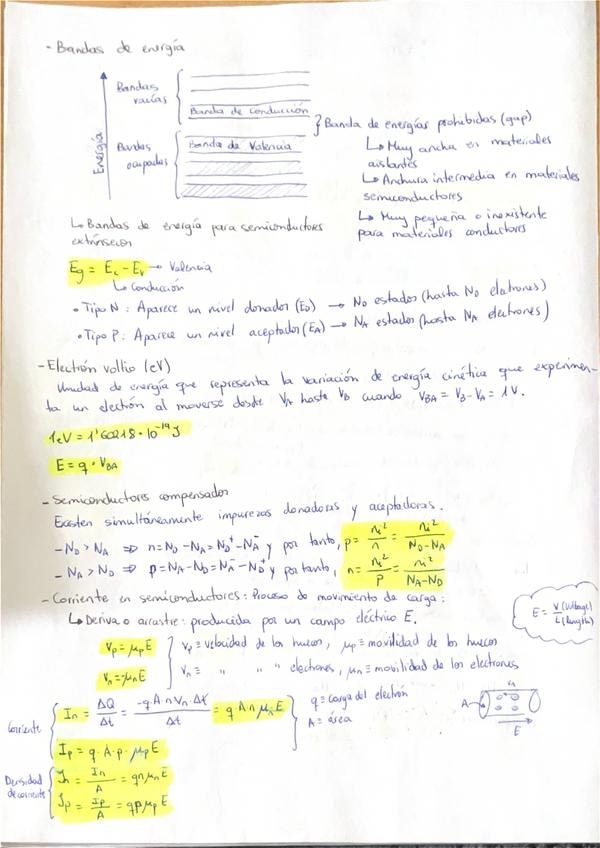 - Bandas de energía
Energía
Bandas vacías
Banda de Conducción
Bandas ocupadas
Banda de Valencia
Banda de energías prohibidas (gap)
↳ Muy ancha en materiales
aislantes
↳ Anchura intermedia en materiales
semiconductores
↳ Muy pequeña o inexistente
para materiales conductores
↳ Bandas de energía para semiconductores
extrínsecos
Eg = Ec - Ev → Valencia
↳ Conducción
• Tipo N: Aparece un nivel donador (ED) → ND estados (hasta ND electrones)
• Tipo P: Aparece un nivel aceptador (EA) → NA estados (hasta NA electrones)
- Electrón voltio (eV)
Unidad de energía que representa la variación de energía cinética que experimen-
ta un electrón al moverse desde VA hasta VB cuando VBA = VB - VA = 1V.
1eV = 1'60218 · 10⁻¹⁹ J
E = q · VBA
- Semiconductores compensados
Existen simultáneamente impurezas donadoras y aceptadoras.
- ND > NA ⇒ n = ND - NA = ND⁺ - NA⁻ y por tanto, p = ni²/n = ni²/(ND - NA)
- NA > ND ⇒ p = NA - ND = NA⁻ - ND⁺ y por tanto, n = ni²/p = ni²/(NA - ND)
- Corriente en semiconductores: Proceso de movimiento de carga:
↳ Deriva o arrastre: producida por un campo eléctrico E.
E = V (Voltage) / L (Length)
Vp = μp E
Vp ≡ velocidad de los huecos, μp ≡ movilidad de los huecos
Vn = -μn E
Vn ≡ " " " electrones, μn ≡ movilidad de los electrones
Corriente
In = ΔQ/Δt = -q·A·n·Vn·Δt/Δt = q·A·n·μn E
q ≡ carga del electrón
A ≡ área
A
E
Ip = q · A · p · μp E
Densidad de corriente
Jn = In/A = qnμn E
Jp = Ip/A = qpμp E